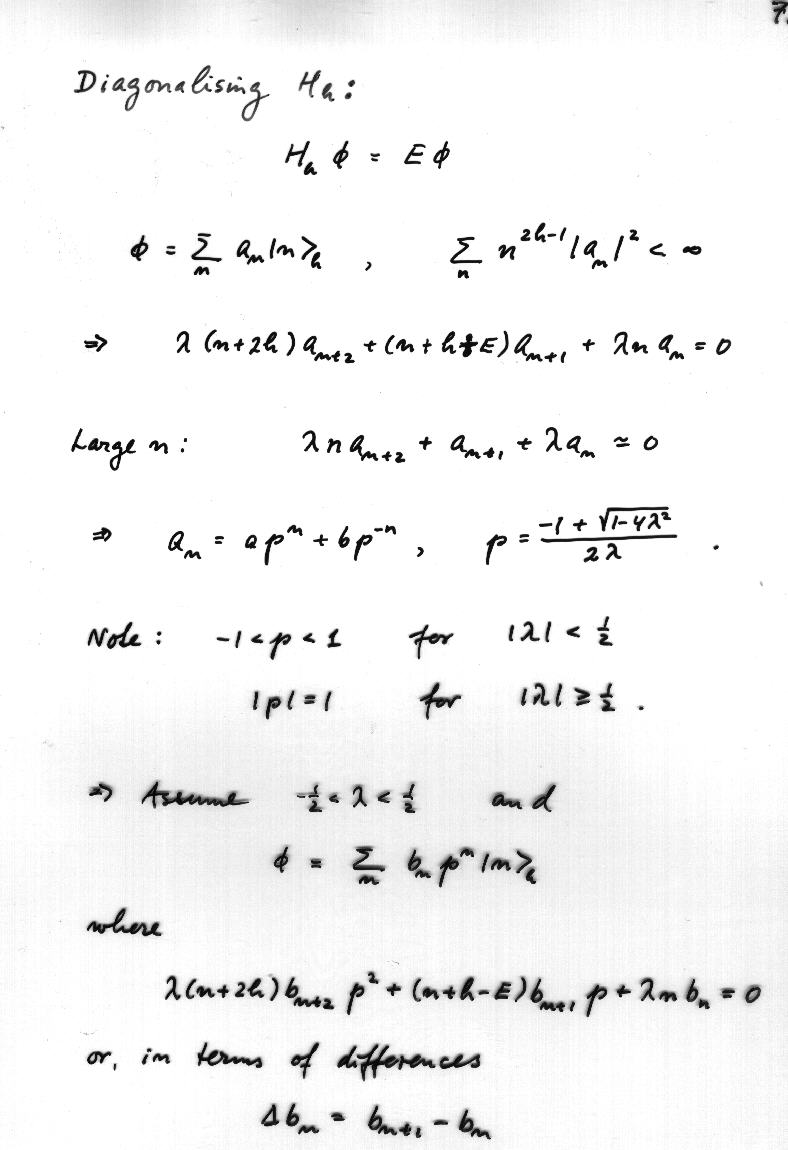 7
Diagonalising H_h:
H_h ϕ = E ϕ
ϕ = Σ_n a_n |n>_h , Σ_n n^{2h-1} |a_n|² < ∞
⇒ λ (n+2h) a_{n+2} + (n+h-E) a_{n+1} + λn a_n = 0
Large n: λ n a_{n+2} + a_{n+1} + λ a_n ≃ 0
⇒ a_n = a p^n + b p^{-n} , p = (-1 + √(1-4λ²)) / 2λ .
Note: -1 < p < 1 for |λ| < 1/2
|p| = 1 for |λ| ≥ 1/2 .
⇒ Assume -1/2 < λ < 1/2 and
ϕ = Σ_n b_n p^n |n>_h
where
λ(n+2h) b_{n+2} p² + (n+h-E) b_{n+1} p + λn b_n = 0
or, in terms of differences
Δb_n = b_{n+1} - b_n